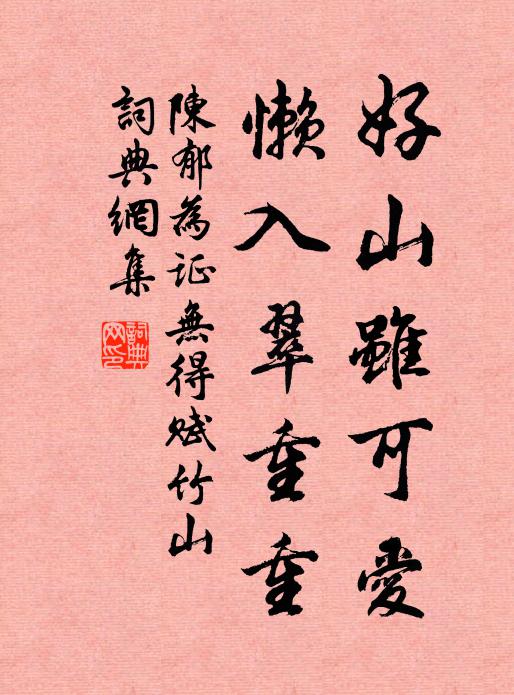 好山雖可愛
懶入翠重重
陳郁為证無得賦竹山
詞典網集
詞典
网印